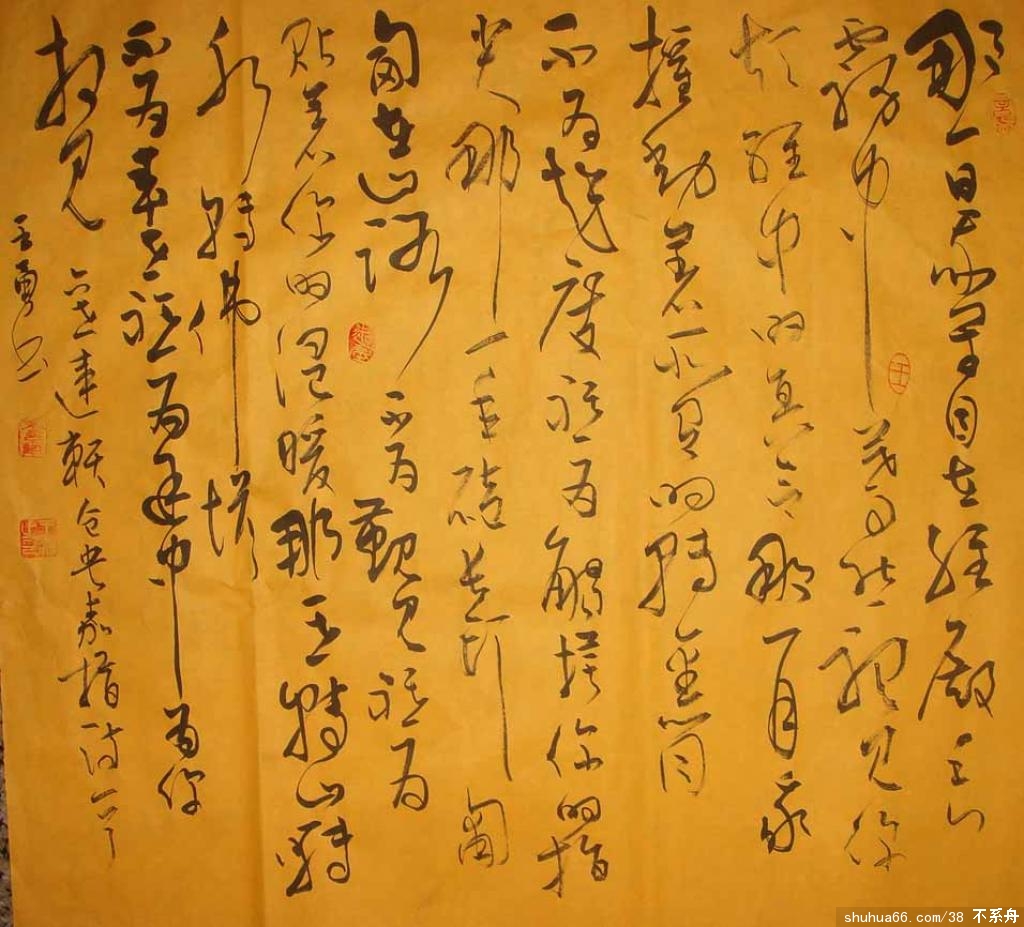 那一日目在经殿
雾中蓦然听见你
颂经中的真言那一月我
摇动着所有的转经筒
不为超度祗为触摸你的指
尖那一年磕长头匍
匐在山路不为觐见祗为
贴着你的温暖那一世转山转
水转佛塔
不为来世祗为途中为你
相见 六世达赖仓央嘉措诗一首
王勇书
shuhua66.com/38 不系舟